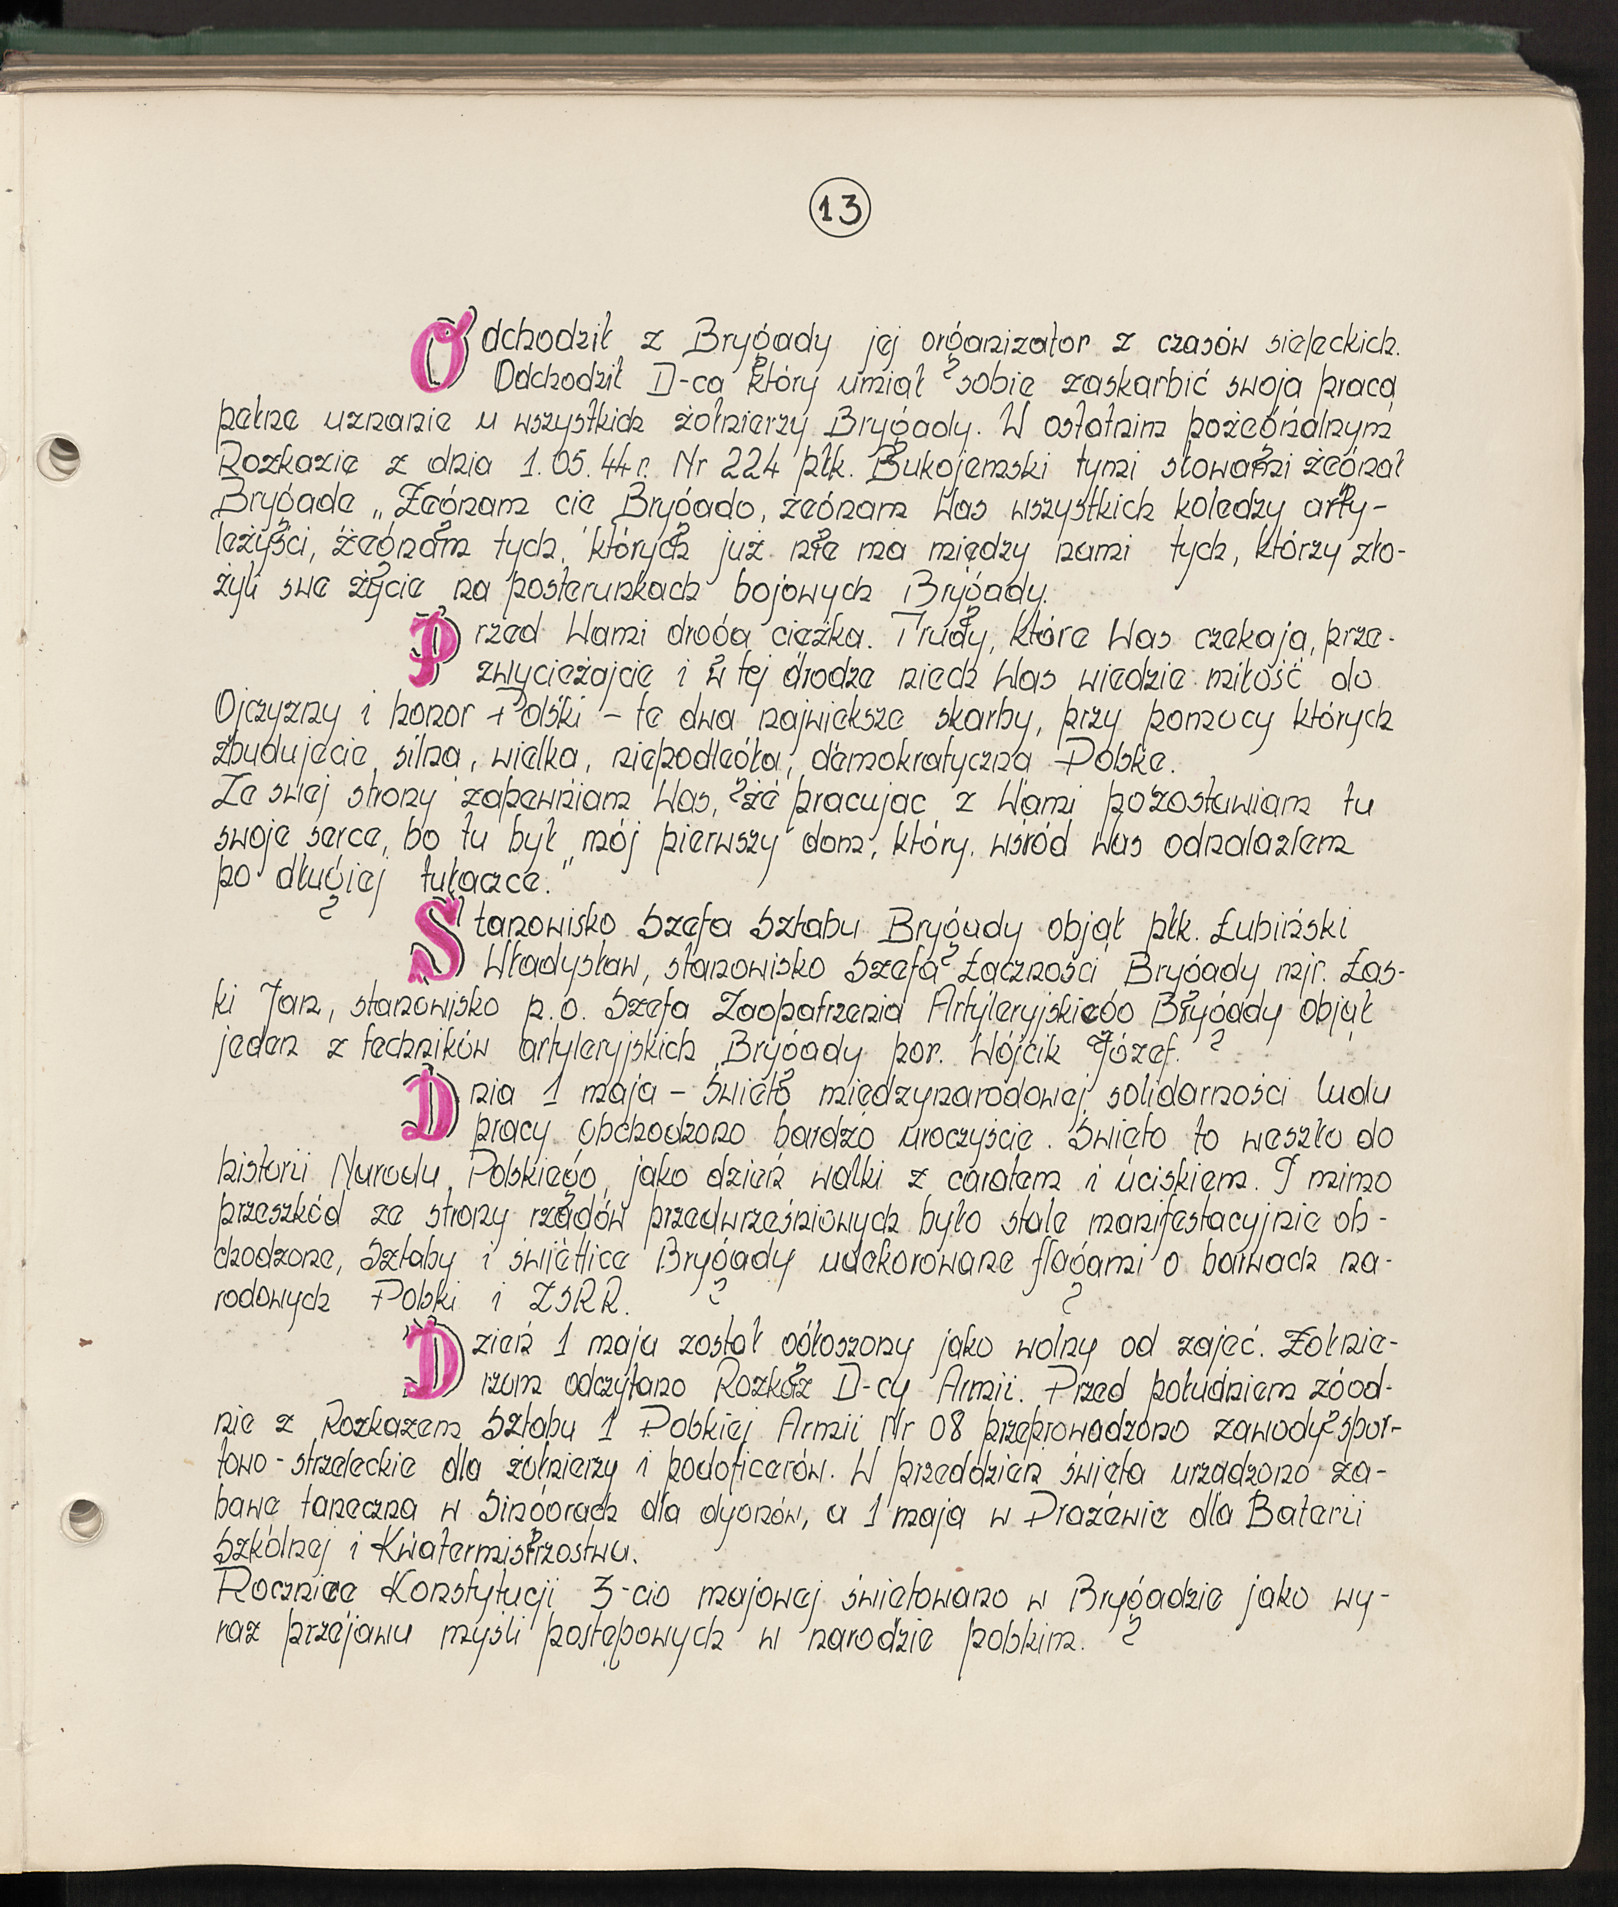 13
Odchodził z Brygady jej organizator z czasów sieleckich.
Odchodził D-ca który umiał sobie zaskarbić swoją pracą
pełne uznanie u wszystkich żołnierzy Brygady. W ostatnim pożegnalnym
Rozkazie z dnia 1.05.44 r. Nr 224 płk. Bukojemski tymi słowami żegnał
Brygadę „Żegnam cię Brygado, żegnam Was wszystkich koledzy arty-
leżyści, żegnam tych, których już nie ma między nami tych, którzy zło-
żyli swe życie na posterunkach bojowych Brygady.
Przed Wami droga ciężka. Trudy, które Was czekają, prze-
zwyciężajcie i w tej drodze niech Was wiedzie miłość do
Ojczyzny i honor Polski – te dwa największe skarby, przy pomocy których
zbudujecie silną, wielką, niepodległą, demokratyczną Polskę.
Ze swej strony zapewniam Was, że pracując z Wami pozostawiam tu
swoje serce, bo tu był mój pierwszy dom, który wśród Was odnalazłem
po długiej tułaczce."
Stanowisko Szefa Sztabu Brygady objął płk. Łubiński
Władysław, stanowisko Szefa Łączności Brygady mjr. Łas-
ki Jan, stanowisko p.o. Szefa Zaopatrzenia Artyleryjskiego Brygady objął
jeden z techników artyleryjskich Brygady por. Wójcik Józef.
Dnia 1 maja – Święto międzynarodowej solidarności ludu
pracy obchodzono bardzo uroczyście. Święto to weszło do
historii Narodu Polskiego, jako dzień walki z caratem i uciskiem. I mimo
przeszkód ze strony rządów przedwrześniowych było stale manifestacyjnie ob-
chodzone, Sztaby i świetlice Brygady udekorowane flagami o barwach na-
rodowych Polski i ZSRR.
Dzień 1 maja został ogłoszony jako wolny od zajęć. Żołnie-
rzom odczytano Rozkaz D-cy Armii. Przed południem zgod-
nie z Rozkazem Sztabu 1 Polskiej Armii Nr 08 przeprowadzono zawody spor-
towo - strzeleckie dla żołnierzy i podoficerów. W przeddzień święta urządzono za-
bawę taneczną w Singorach dla dyonów, a 1 maja w Prażewie dla Baterii
Szkolnej i Kwatermistrzostwa.
Rocznicę Konstytucji 3-cio majowej świętowano w Brygadzie jako wy-
raz przejawu myśli postępowych w narodzie polskim.